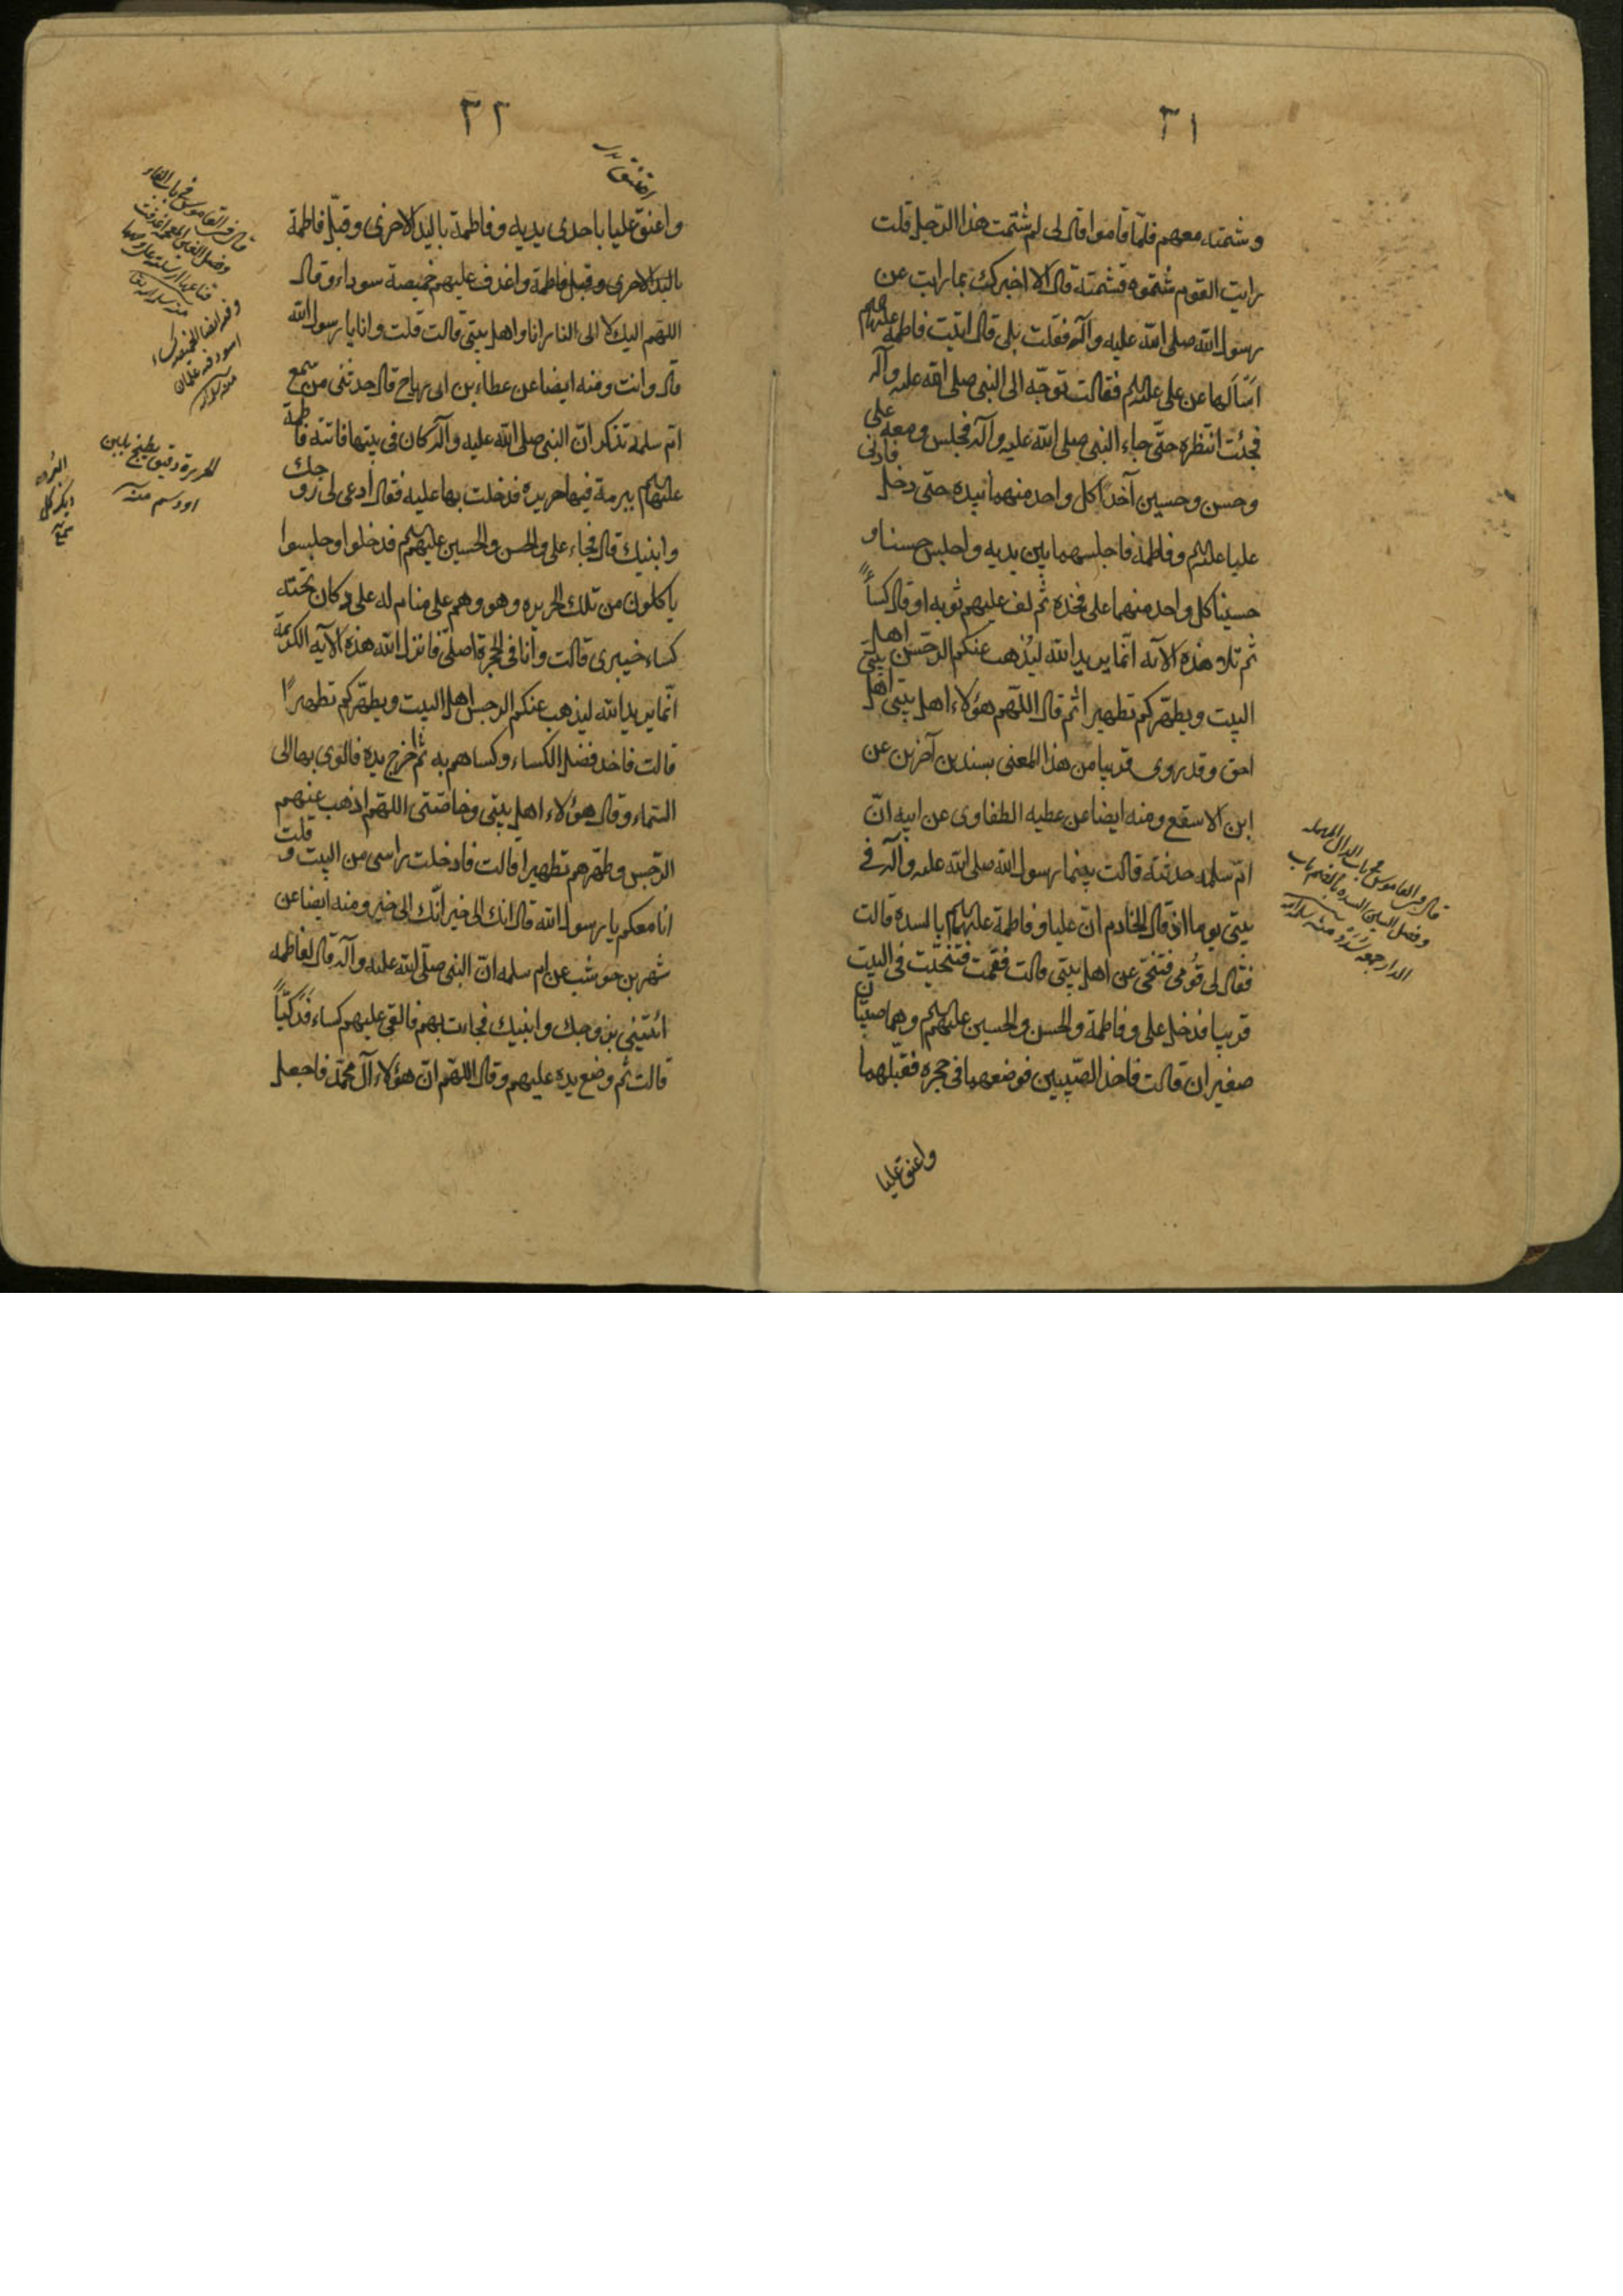 ٣١
وشتمته معهم فلمّا قاموا قال لى لم شتمت هذا الرّجل قلت
رايت القوم شتموه فشتمته قال الا اخبرك بما رايت عن
رسول الله صلى الله عليه وآله فقلت بلى قال اتيت فاطمة عليها السلم
اسألها عن على عليه السلم فقالت توجّه الى النبى صلى الله عليه وآله
فجئت انتظره حتّى جاء النبى صلى الله عليه وآله فجلس ومعه على
وحسن وحسين آخذا كل واحد منهما بيده حتى دخل فادنى
عليا عليه السلم وفاطمة فاجلسهما بين يديه واجلس حسنا و
حسينا كل واحد منهما على فخذه ثم لف عليهم ثوبه او قال كساءً
ثم تلا هذه الآيه انّما يريد الله ليُذهب عنكم الرّجس اهل
البيت ويطهّركم تطهيرا ثم قال اللّهم هؤلاء اهل بيتى اهل بيتى
احق وقد روى قريبا من هذا المعنى بسندين آخرين عن
ابن الاسقع ومنه ايضا عن عطيه الطفاوى عن ابيه انّ
امّ سلمه حدثته قالت بينما رسول الله صلى الله عليه وآله فى
بيتى يوما اذ قال الخادم انّ عليا وفاطمة عليهما السلم بالسدة قالت
فقال لى قومى فتنحّى عن اهل بيتى قالت فقمت فتنحّيت فى البيت
قريبا فدخل على وفاطمة والحسن والحسين عليهم السلم وهما صبيّان
صغيران قالت فاخذ الصّبيين فوضعهما فى حجره فقبّلهما
واعنق عليا
قال فى القاموس فى باب الدال المهمله
وفصل السين السدة بالضم باب
الدار جمعه سُدَد منه
٣٢
واعنق عليا باحدى يديه وفاطمة باليد الاخرى وقبّل فاطمة
باليد الاخرى وقبل فاطمة واغدف عليهم خميصة سوداء وقال
اللهّم اليك لا الى النار انا واهل بيتى قالت قلت وانا يا رسول الله
قال وانت ومنه ايضا عن عطاء بن ابى رباح قال حدثنى من سمع
امّ سلمة تذكر انّ النبى صلى الله عليه وآله كان فى بيتها فاتته فاطمة
عليها السلم ببرمة فيها حريره فدخلت بها عليه فقال أدعى لى زوجك
وابنيك قال فجاء على والحسن والحسين عليهم السلم فدخلوا وجلسوا
ياكلون من تلك الحريره وهو وهم على منام له على دكان تحته
كساء خيبرى قالت وانا فى الحجرة اصلّى فانزل الله هذه الآيه الكريمة
انّما يريد الله ليذهب عنكم الرجس اهل البيت ويطهّركم تطهيرًا
قالت فاخذ فضل الكساء وكساهم به ثم اخرج يده فالوى بها الى
السّماء وقال هؤلاء اهل بيتى وخاصّتى اللهّم اذهب عنهم
الرّجس وطهّرهم تطهيرا قالت فادخلت راسى من البيت وقلت
انا معكم يا رسول الله قال انك الى خير انّك الى خير ومنه ايضا عن
شهر بن حوشب عن ام سلمه انّ النبى صلّى الله عليه وآله قال لفاطمه
ائتينى بزوجك وابنيك فجاءت بهم فالقى عليهم كساء فدكيّاً
قالت ثم وضع يده عليهم وقال اللهّم انّ هؤلاء آل محمّد فاجعل
قال فى القاموس فى باب الفاء
وفصل الغين المعجمه اغدفت
قناعها ارسلته على وجهها
وفيه ايضا الخميصه كساء
اسود فيه علمان
الحريرة دقيق يطبخ بلبن
او دسم منه